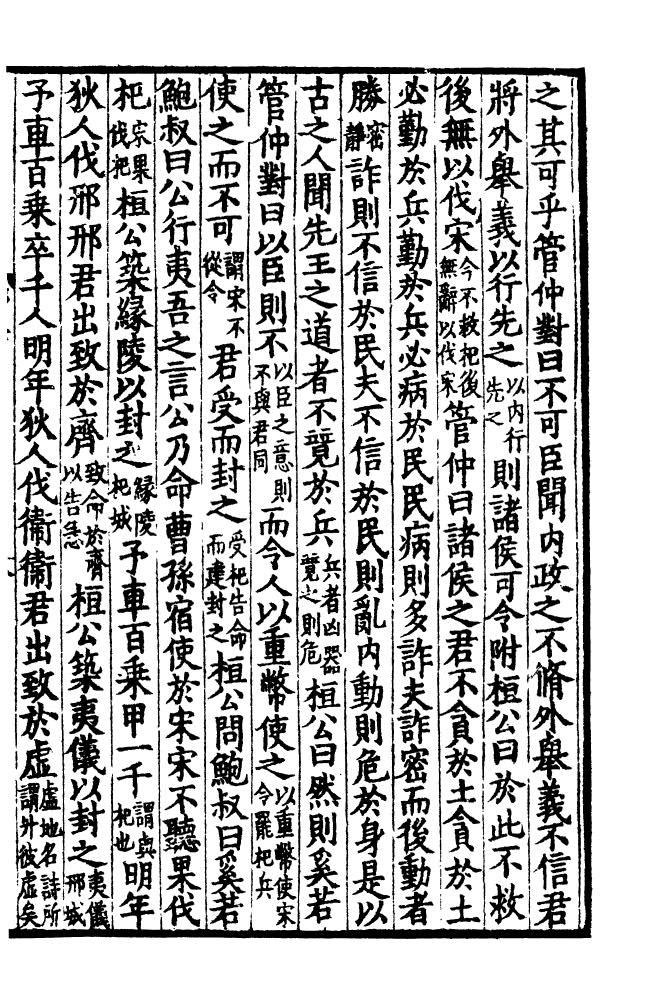 之其可乎管仲對曰不可臣聞内政之不脩外舉義不信君
將外舉義以行先之以内行先之則諸侯可令附桓公曰於此不救
後無以伐宋今不救杞後無辭以伐宋管仲曰諸侯之君不貪於土貪於土
必勤於兵勤於兵必病於民民病則多詐夫詐密而後動者
勝密靜詐則不信於民夫不信於民則亂内動則危於身是以
古之人聞先王之道者不競於兵兵者凶器競之則危桓公曰然則奚若
管仲對曰以臣則不以臣之意則不與君同而令人以重幣使之以重幣使宋令罷杞兵
使之而不可謂宋不從令君受而封之受杞告命而建封之桓公問鮑叔曰奚若
鮑叔曰公行夷吾之言公乃命曹孫宿使於宋宋不聽果伐
杞宋果伐杞桓公築緣陵以封之緣陵杞城予車百乘甲一千謂與杞也明年
狄人伐邢邢君出致於齊致命於齊以告急桓公築夷儀以封之夷儀邢城
予車百乘卒千人明年狄人伐衞衞君出致於虛虛地名詩所謂升彼虛矣